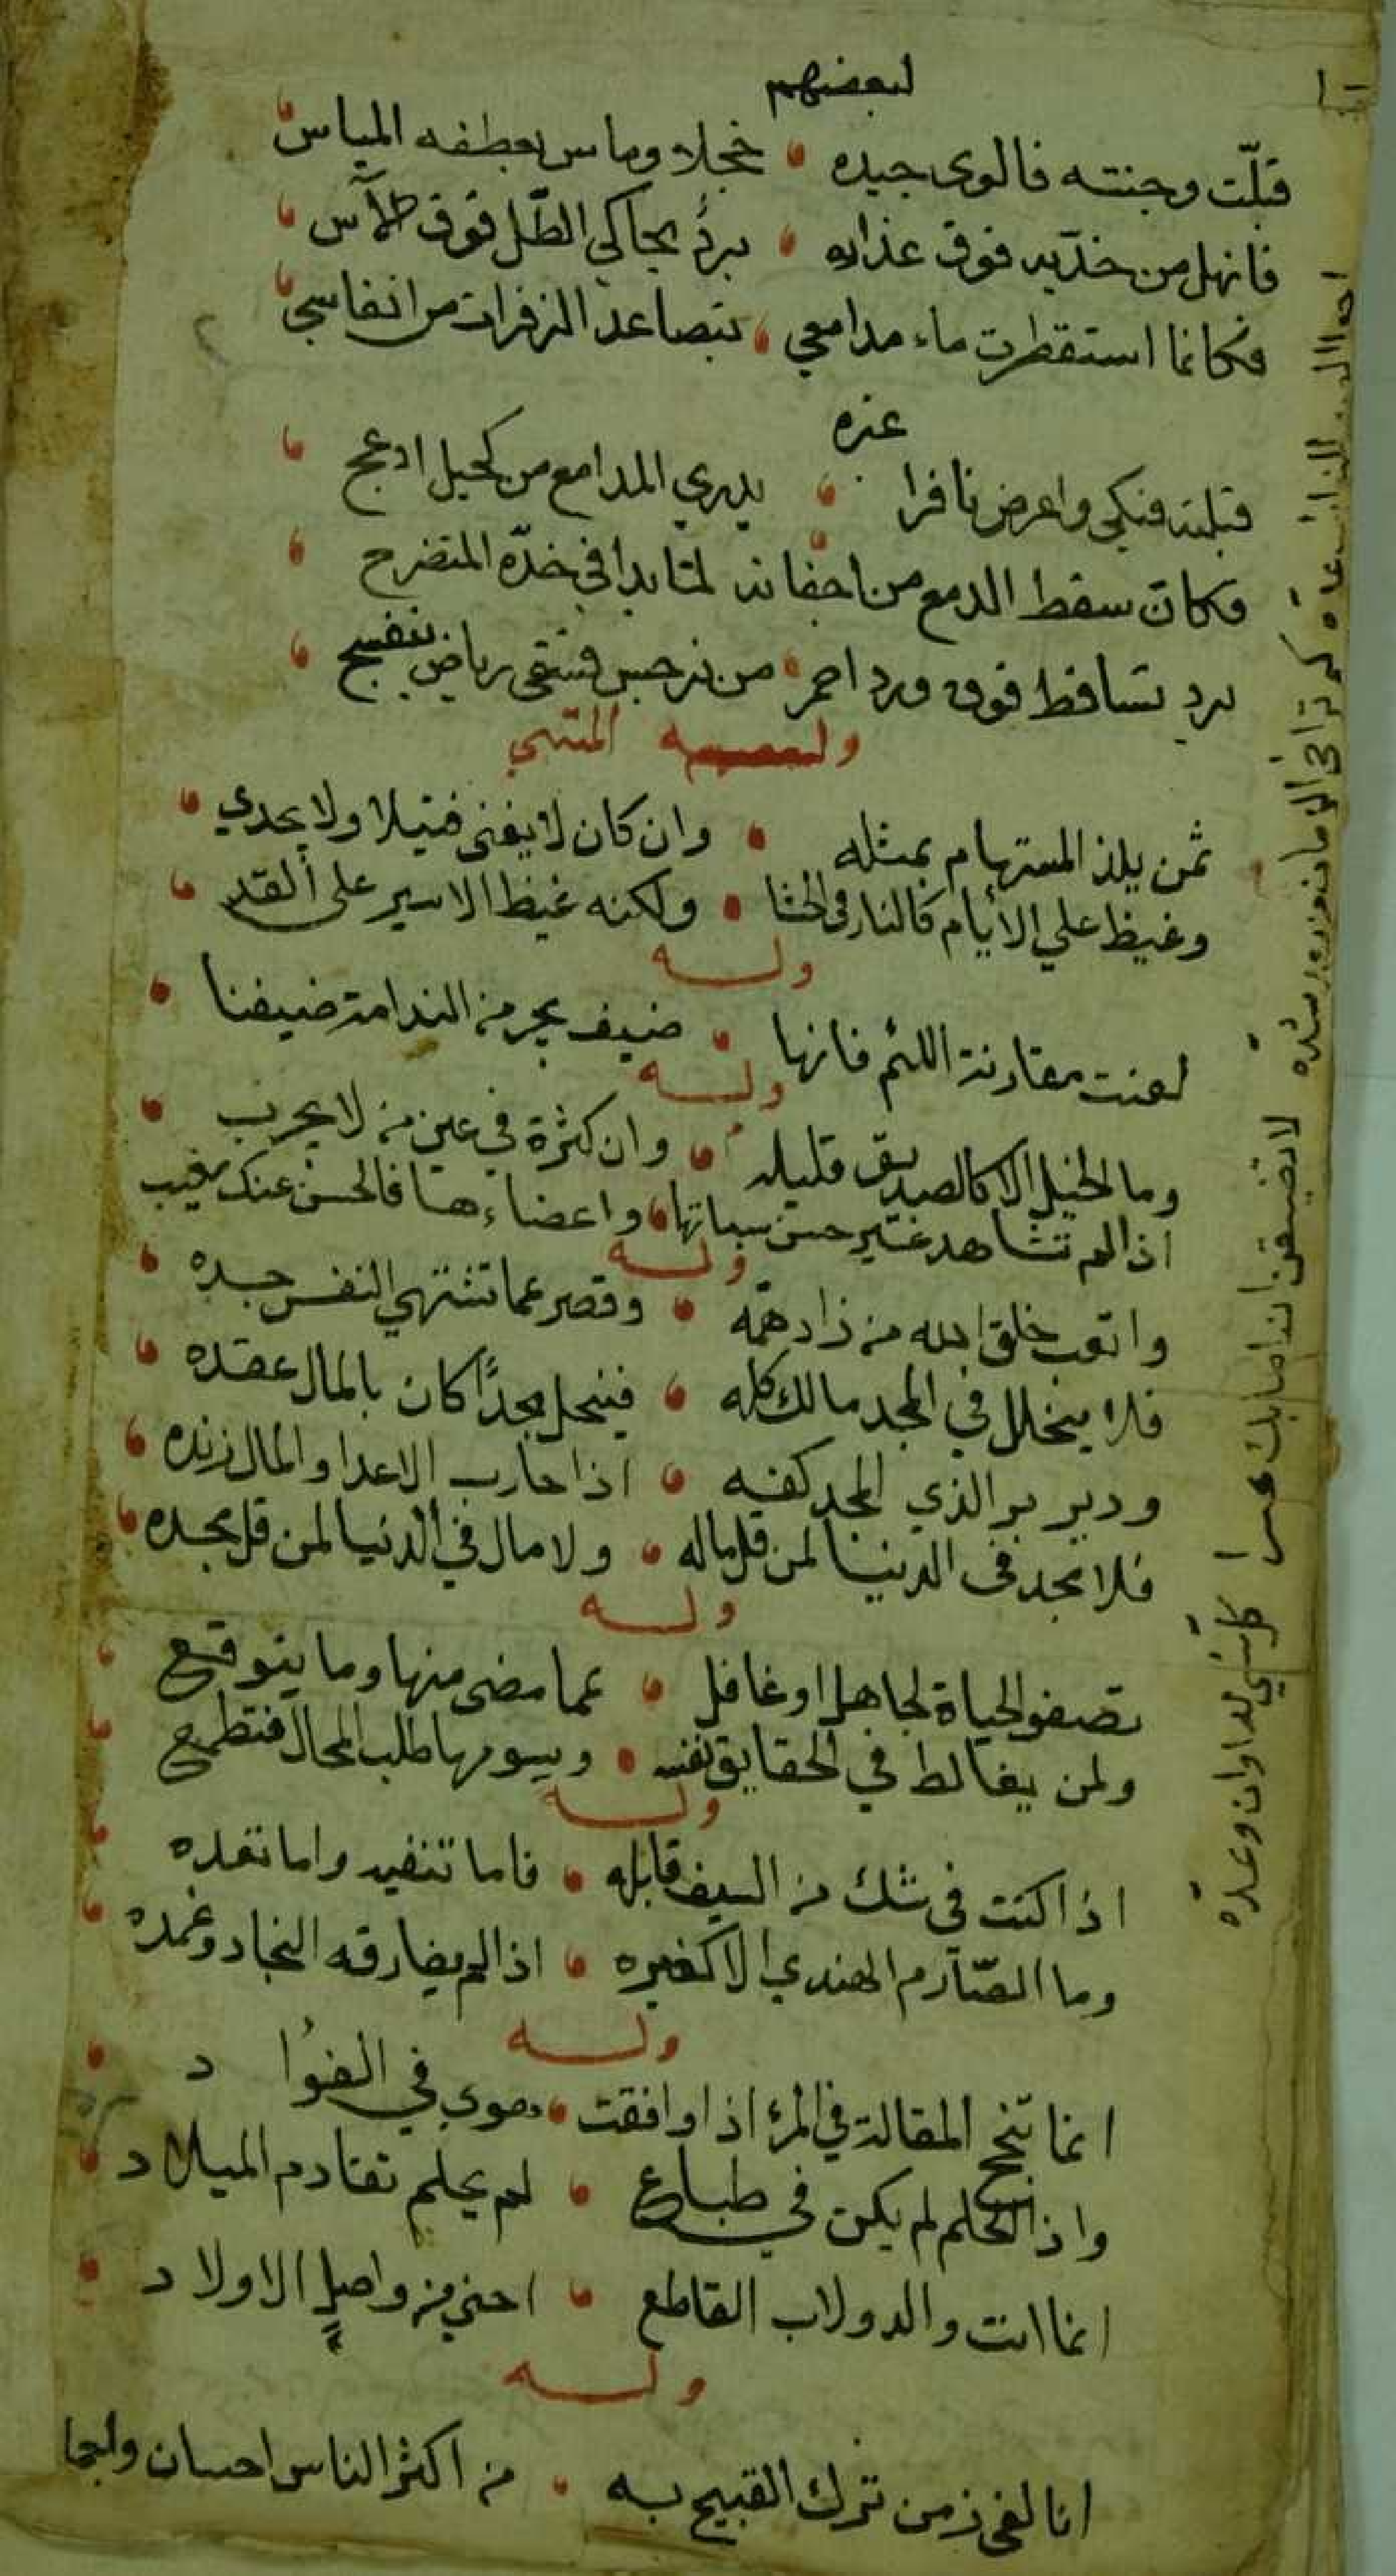 لبعضهم
قبلّت وجنته فالوى جيده خجلا وماس بعطفه المياس
فانهل من خدّيه فوق عذاره برد يحاكي الطّل فوق الآس
فكانما استقطرت ماء مدامعي بتصاعد الزفرات من انفاسي
غيره
قبلته فبكى واعرض نافرا يذري المدامع من كحيل ادعج
فكان سقط الدمع من اجفانه لما بدا في خدّه المتضرج
برد تساقط فوق ورد احمر من نرجس فسقى رياض بنفسج
المتنبي
ثمن يلذ المستهام بمثله وان كان لا يغنى فتيلا ولا يجدي
وغيظ علي الأيام كالنار في الحشا ولكنه غيظ الاسير على القد
وله
لعنت مقارنة اللئم فانها ضيف يجر من الندامة ضيفنا
وله
وما الخيل الا كالصديق قليله وان كثرة في عين من لا يجرب
اذا لم تشاهد غير حسن شياتها واعضاءها فالحسن عنك مغيب
وله
واتعب خلق الله من زاد همّه وقصر عما تشتهي النفس جده
فلا ينحلل في المجد مالك كله فينحل مجدًا كان بالمال عقده
ودبر بر الذي المجد كفه اذا حارب الاعدا والمال زنده
فلا مجد في الدنيا لمن قل ماله ولا مال في الدنيا لمن قل مجده
وله
تصفو الحياة لجاهل او غافل عما مضى منها وما يتوقع
ولمن يغالط في الحقايق نفسه ويسومها طلب المحال فتطمع
وله
اذا كنت في شك من السيف فابله فاما تنفيه واما تعده
وما الصّارم الهندي الا كغيره اذا لم يفارقه النجاد وغمده
وله
انما تنجح المقالة في المرء اذا وافقت هوى في الفؤاد
واذا الحلم لم يكن في طباع لم يحلم تقادم الميلاد
انما انت والد ولاب القاطع احنى من واصل الاولاد
وله
انا لفي زمن ترك القبيح به من اكثر الناس احسان واجما
لا تضيقن